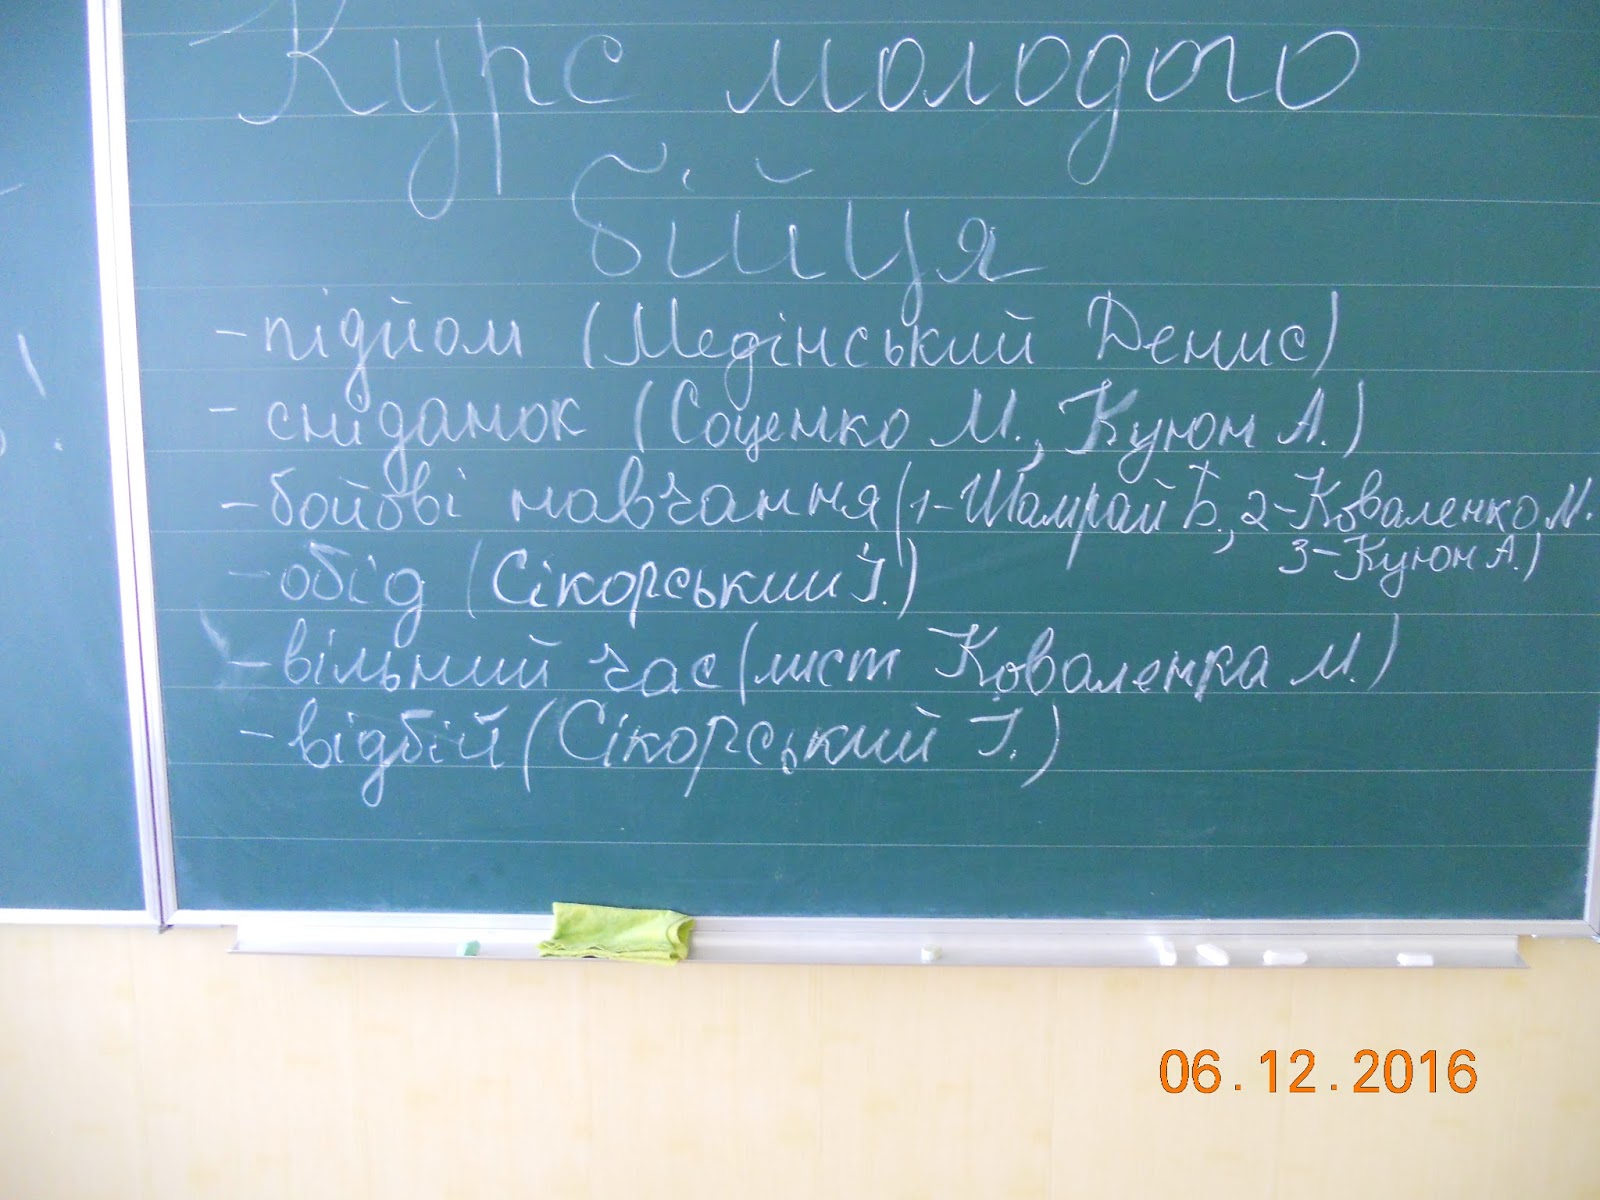 Курс молодого
бійця
- підйом (Медінський Денис)
- сніданок (Соценко М., Куюн А.)
- бойові навчання (1-Шамрай Б., 2-Коваленко М.
3-Куюн А.)
- обід (Сікорський І.)
- вільний час (лист Коваленка М.)
- відбій (Сікорський І.)
06.12.2016